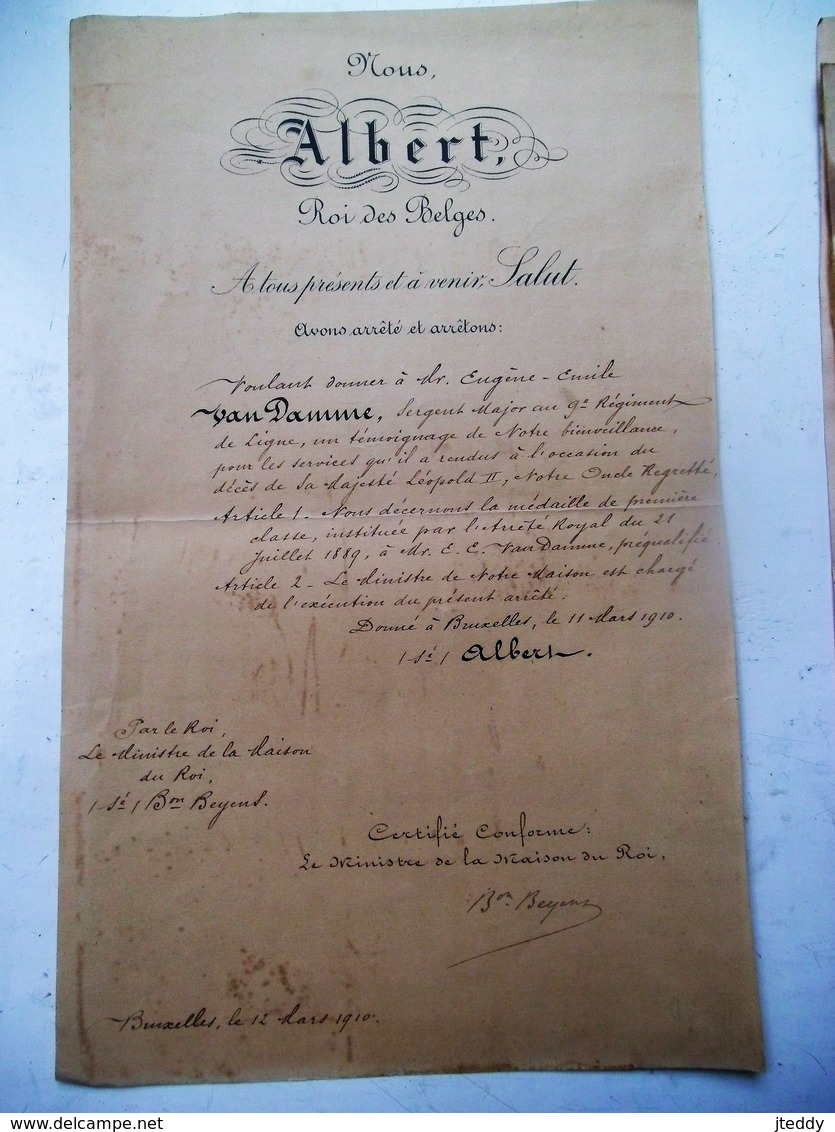 Nous,
Albert,
Roi des Belges.
A tous présents et à venir, Salut.
Avons arrêté et arrêtons:
Voulant donner à Mr. Eugène-Emile
Van Damme, Sergent Major au 9e Régiment
de Ligne, un témoignage de Notre bienveillance,
pour les services qu'il a rendus à l'occasion du
décès de Sa Majesté Léopold II, Notre Oncle Regretté,
Article 1. Nous décernons la médaille de première
classe, instituée par l'Arrêté Royal du 21
Juillet 1889, à Mr. E. E. Van Damme, préqualifié.
Article 2 - Le Ministre de Notre Maison est chargé
de l'exécution du présent arrêté.
Donné à Bruxelles, le 11 Mars 1910.
(Sé) Albert.
Par le Roi,
Le Ministre de la Maison
du Roi,
(Sé) Bon Beyens.
Certifié Conforme:
Le Ministre de la Maison du Roi,
Bon Beyens
Bruxelles, le 12 Mars 1910.
www.delcampe.net
jteddy